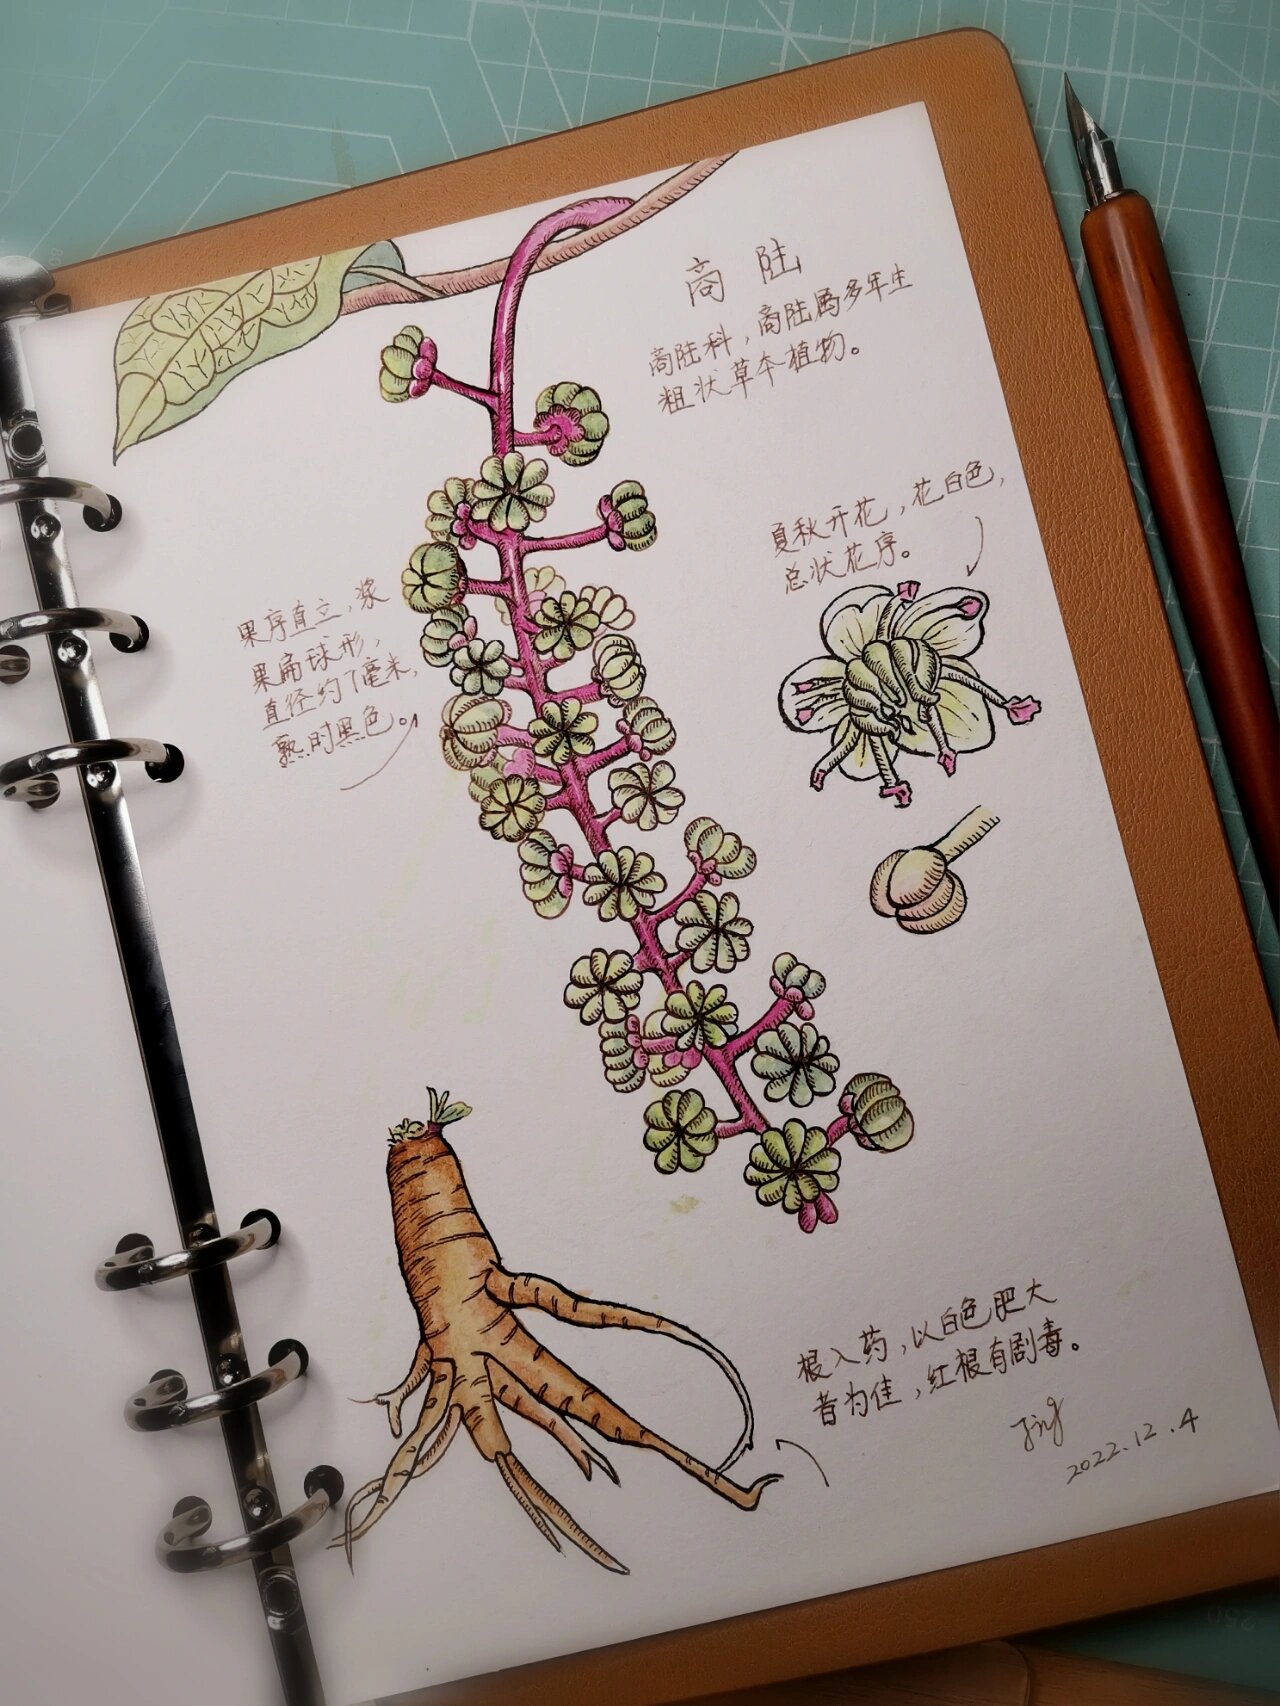 商陆
商陆科，商陆属多年生
粗状草本植物。
夏秋开花，花白色，
总状花序。
果序直立，浆
果扁球形，
直径约7毫米，
熟时黑色。
根入药，以白色肥大
者为佳，红根有剧毒。
Jing
2022.12.4